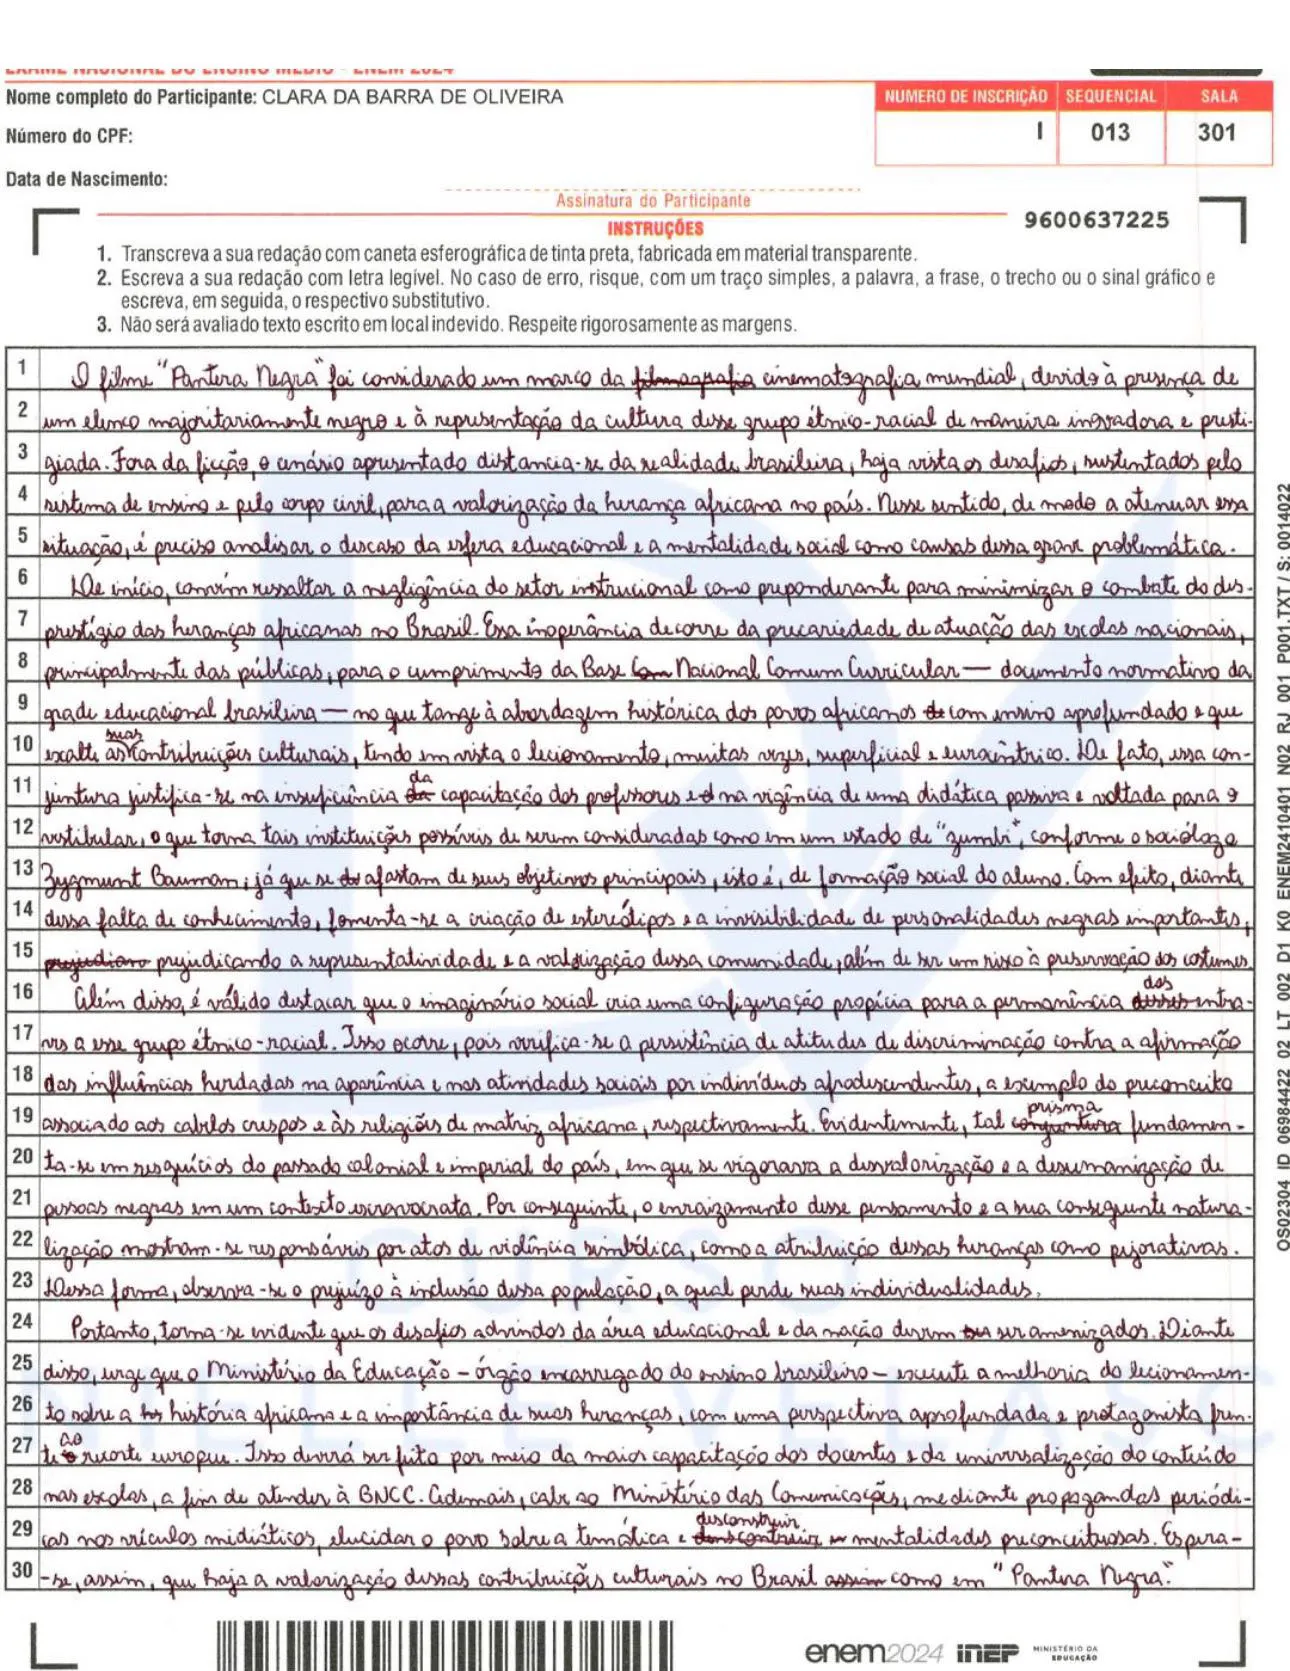 EXAME NACIONAL DO ENSINO MÉDIO - ENEM 2024
Nome completo do Participante: CLARA DA BARRA DE OLIVEIRA
NUMERO DE INSCRIÇÃO SEQUENCIAL SALA
Número do CPF:
I 013 301
Data de Nascimento:
Assinatura do Participante
INSTRUÇÕES
9600637225
1. Transcreva a sua redação com caneta esferográfica de tinta preta, fabricada em material transparente.
2. Escreva a sua redação com letra legível. No caso de erro, risque, com um traço simples, a palavra, a frase, o trecho ou o sinal gráfico e
escreva, em seguida, o respectivo substitutivo.
3. Não será avaliado texto escrito em local indevido. Respeite rigorosamente as margens.
1 O filme "Pantera Negra" foi considerado um marco da filmografia cinematografia mundial, devido à presença de
2 um elenco majoritariamente negro e à representação da cultura desse grupo étnico-racial de maneira inovadora e presti-
3 giada. Fora da ficção, o cenário apresentado distancia-se da realidade brasileira, haja vista os desafios, sustentados pelo
4 sistema de ensino e pelo corpo civil, para a valorização da herança africana no país. Nesse sentido, de modo a atenuar essa
5 situação, é preciso analisar o descaso da esfera educacional e a mentalidade social como causas dessa grave problemática.
6 De início, convém ressaltar a negligência do setor instrucional como preponderante para minimizar o combate do des-
7 prestígio das heranças africanas no Brasil. Essa inoperância decorre da precariedade de atuação das escolas nacionais,
8 principalmente das públicas, para o cumprimento da Base Com Nacional Comum Curricular — documento normativo da
9 grade educacional brasileira — no que tange à abordagem histórica dos povos africanos de com ensino aprofundado e que
10 exalte as suas contribuições culturais, tendo em vista o lecionamento, muitas vezes, superficial e eurocêntrico. De fato, essa con-
11 juntura justifica-se na insuficiência da capacitação dos professores e na vigência de uma didática passiva e voltada para o
12 vestibular, o que torna tais instituições possíveis de serem consideradas como em um estado de "zumbi", conforme o sociólogo
13 Zygmunt Bauman, já que se afastam de seus objetivos principais, isto é, de formação social do aluno. Com efeito, diante
14 dessa falta de conhecimento, fomenta-se a criação de estereótipos e a invisibilidade de personalidades negras importantes,
15 prejudiano prejudicando a representatividade e a valorização dessa comunidade, além de ser um risco à preservação dos costumes.
16 Além disso, é válido destacar que o imaginário social cria uma configuração propícia para a permanência desses dos entra-
17 ves a esse grupo étnico-racial. Isso ocorre, pois verifica-se a persistência de atitudes de discriminação contra a afirmação
18 das influências herdadas na aparência e nas atividades sociais por indivíduos afrodescendentes, a exemplo do preconceito
19 associado aos cabelos crespos e às religiões de matriz africana, respectivamente. Evidentemente, tal conjuntura prisma fundamen-
20 ta-se em resquícios do passado colonial e imperial do país, em que se vigorava a desvalorização e a desumanização de
21 pessoas negras em um contexto escravocrata. Por conseguinte, o enraizamento desse pensamento e a sua consequente natura-
22 lização mostram-se responsáveis por atos de violência simbólica, como a atribuição dessas heranças como pejorativas.
23 Dessa forma, observa-se o prejuízo à inclusão dessa população, a qual perde suas individualidades.
24 Portanto, torna-se evidente que os desafios advindos da área educacional e da nação devem ser amenizados. Diante
25 disso, urge que o Ministério da Educação – órgão encarregado do ensino brasileiro – execute a melhoria do lecionamen-
26 to sobre a his história africana e a importância de suas heranças, com uma perspectiva aprofundada e protagonista fren-
27 te ao recorte europeu. Isso deverá ser feito por meio da maior capacitação dos docentes e da universalização do conteúdo
28 nas escolas, a fim de atender à BNCC. Ademais, cabe ao Ministério das Comunicações, mediante propagandas periódi-
29 cas nos veículos midiáticos, elucidar o povo sobre a temática e desconstruir mentalidades preconceituosas. Espera-
30 -se, assim, que haja a valorização dessas contribuições culturais no Brasil assim como em "Pantera Negra".
OS02304 ID 06984422 02 LT 002 D1 K0 ENEM2410401 N02 RJ 001 P001.TXT / S: 0014022
CURSO
enem2024 inep MINISTÉRIO DA
EDUCAÇÃO